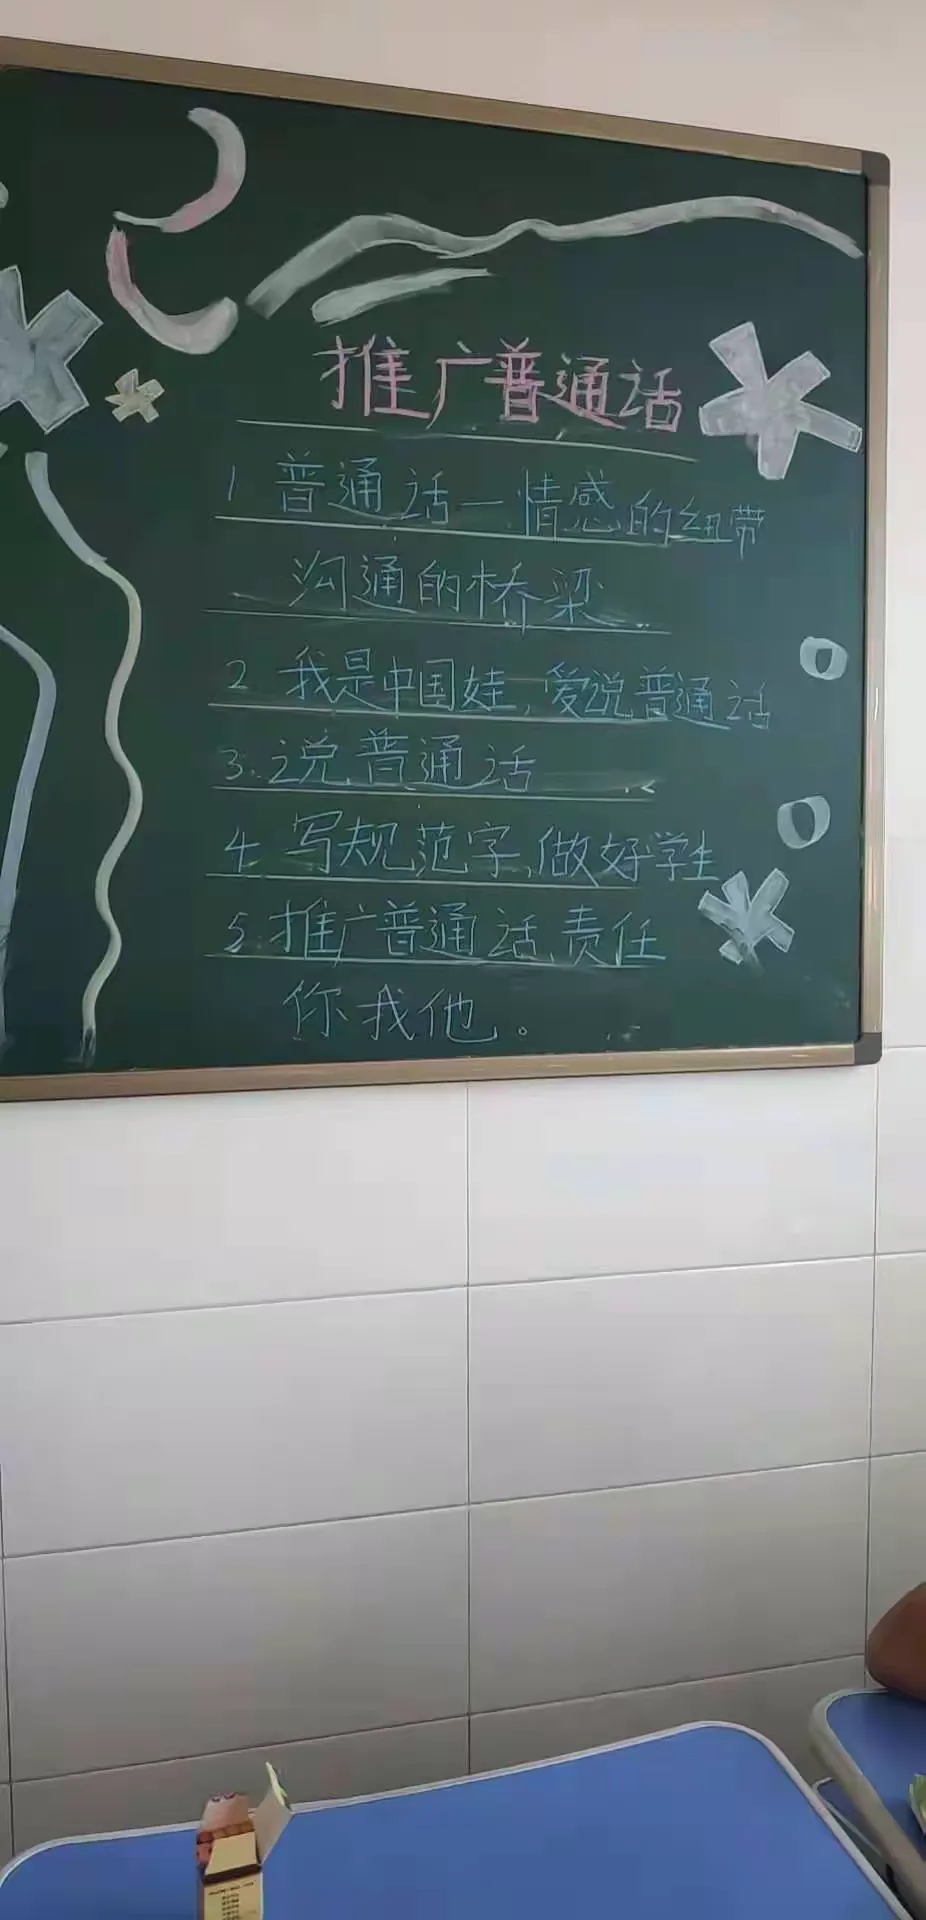 推广普通话
1 普通话—情感的纽带
沟通的桥梁
2 我是中国娃,爱说普通话
3.说普通话
4.写规范字,做好学生
5.推广普通话,责任
你我他。